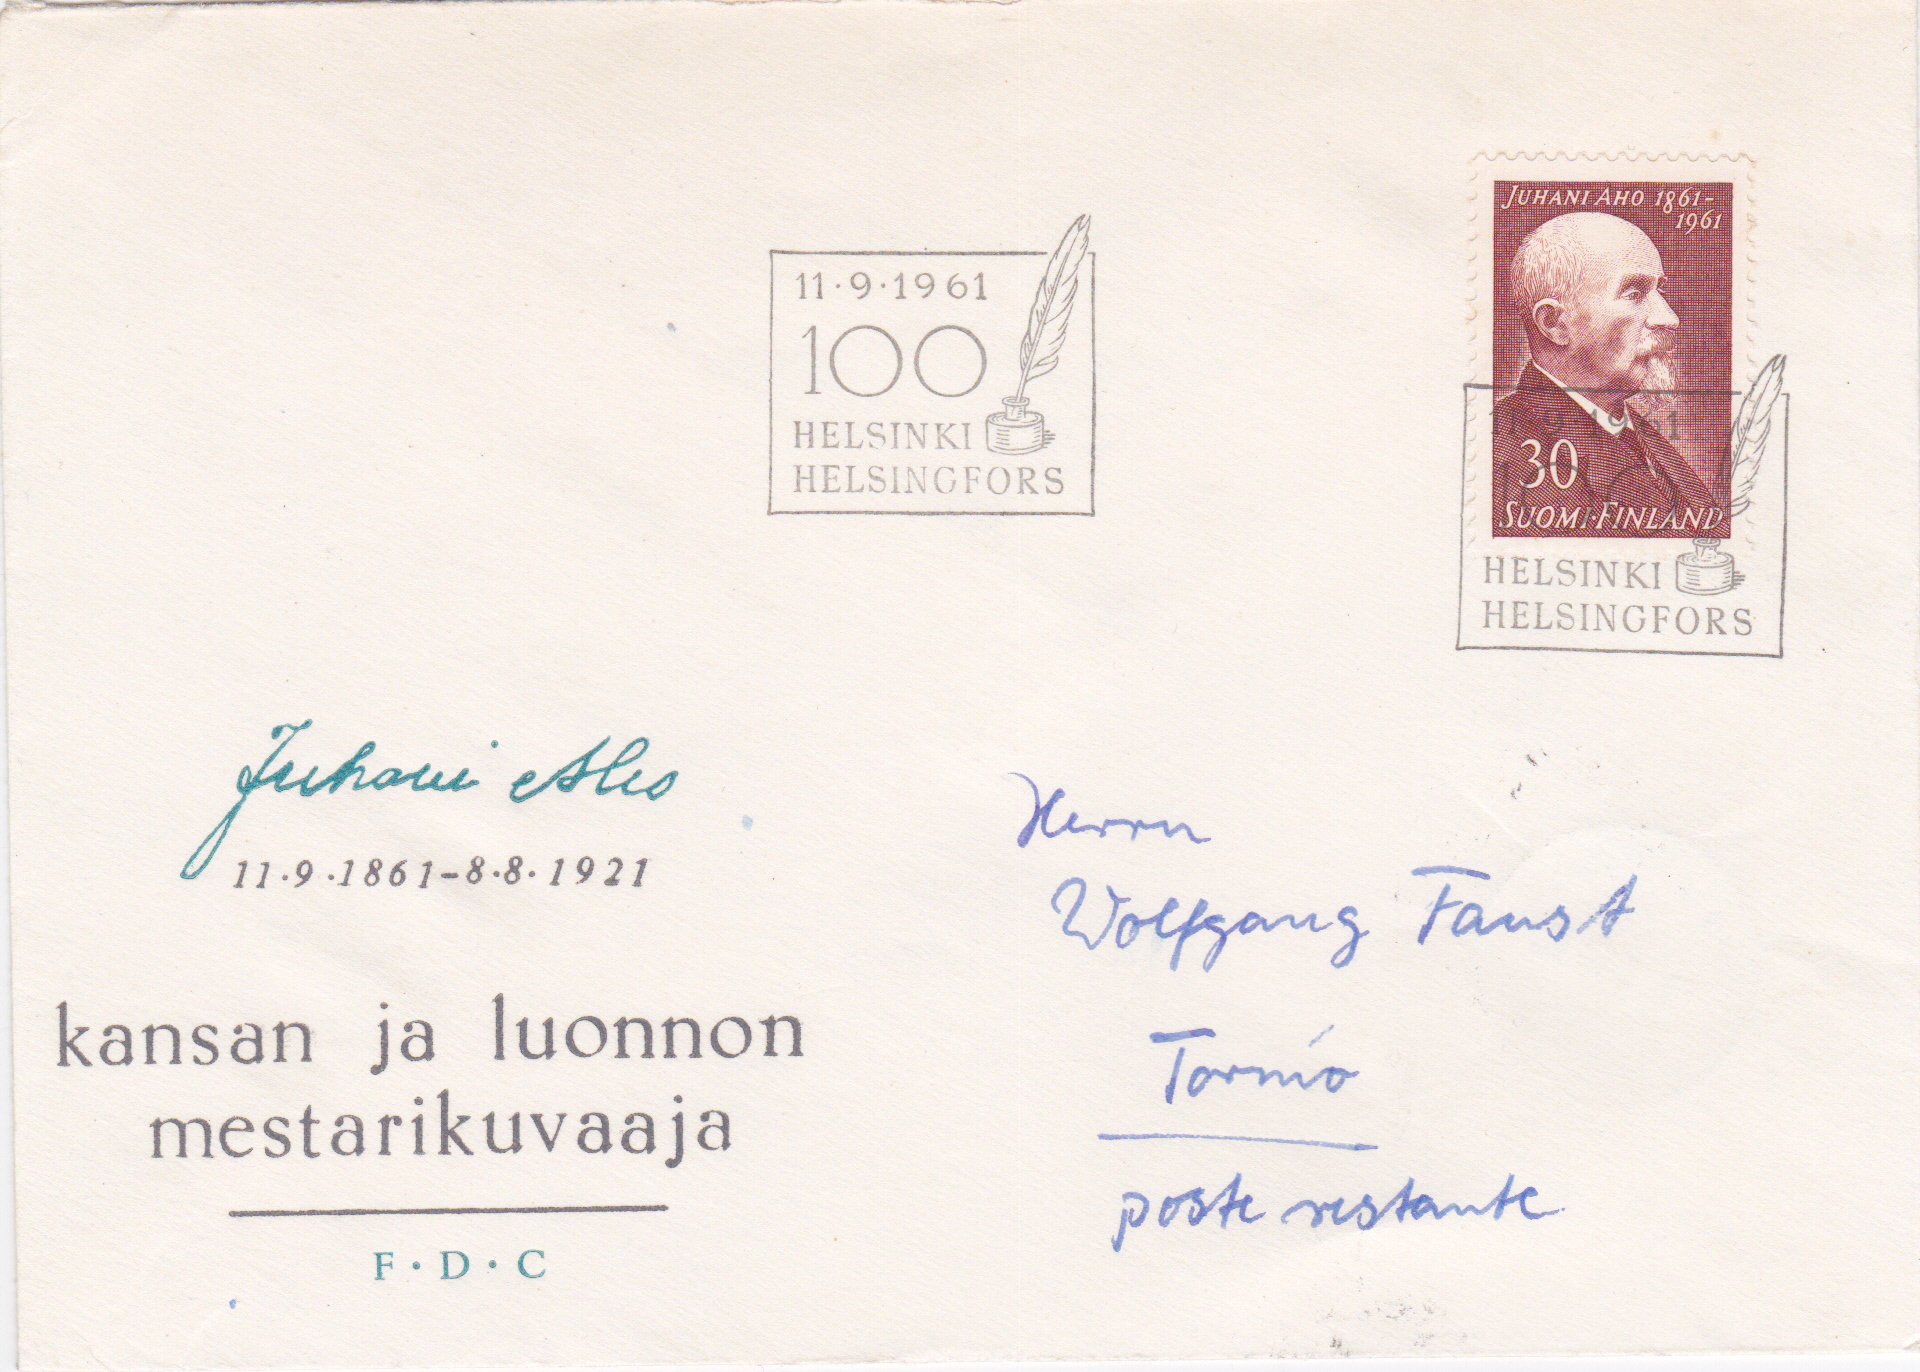 11·9·1961
100
HELSINKI
HELSINGFORS
JUHANI AHO 1861-
1961
30
SUOMI·FINLAND
HELSINKI
HELSINGFORS
Juhani Aho
11·9·1861-8·8·1921
kansan ja luonnon
mestarikuvaaja
F·D·C
Herrn
Wolfgang Faust
Tornio
poste restante